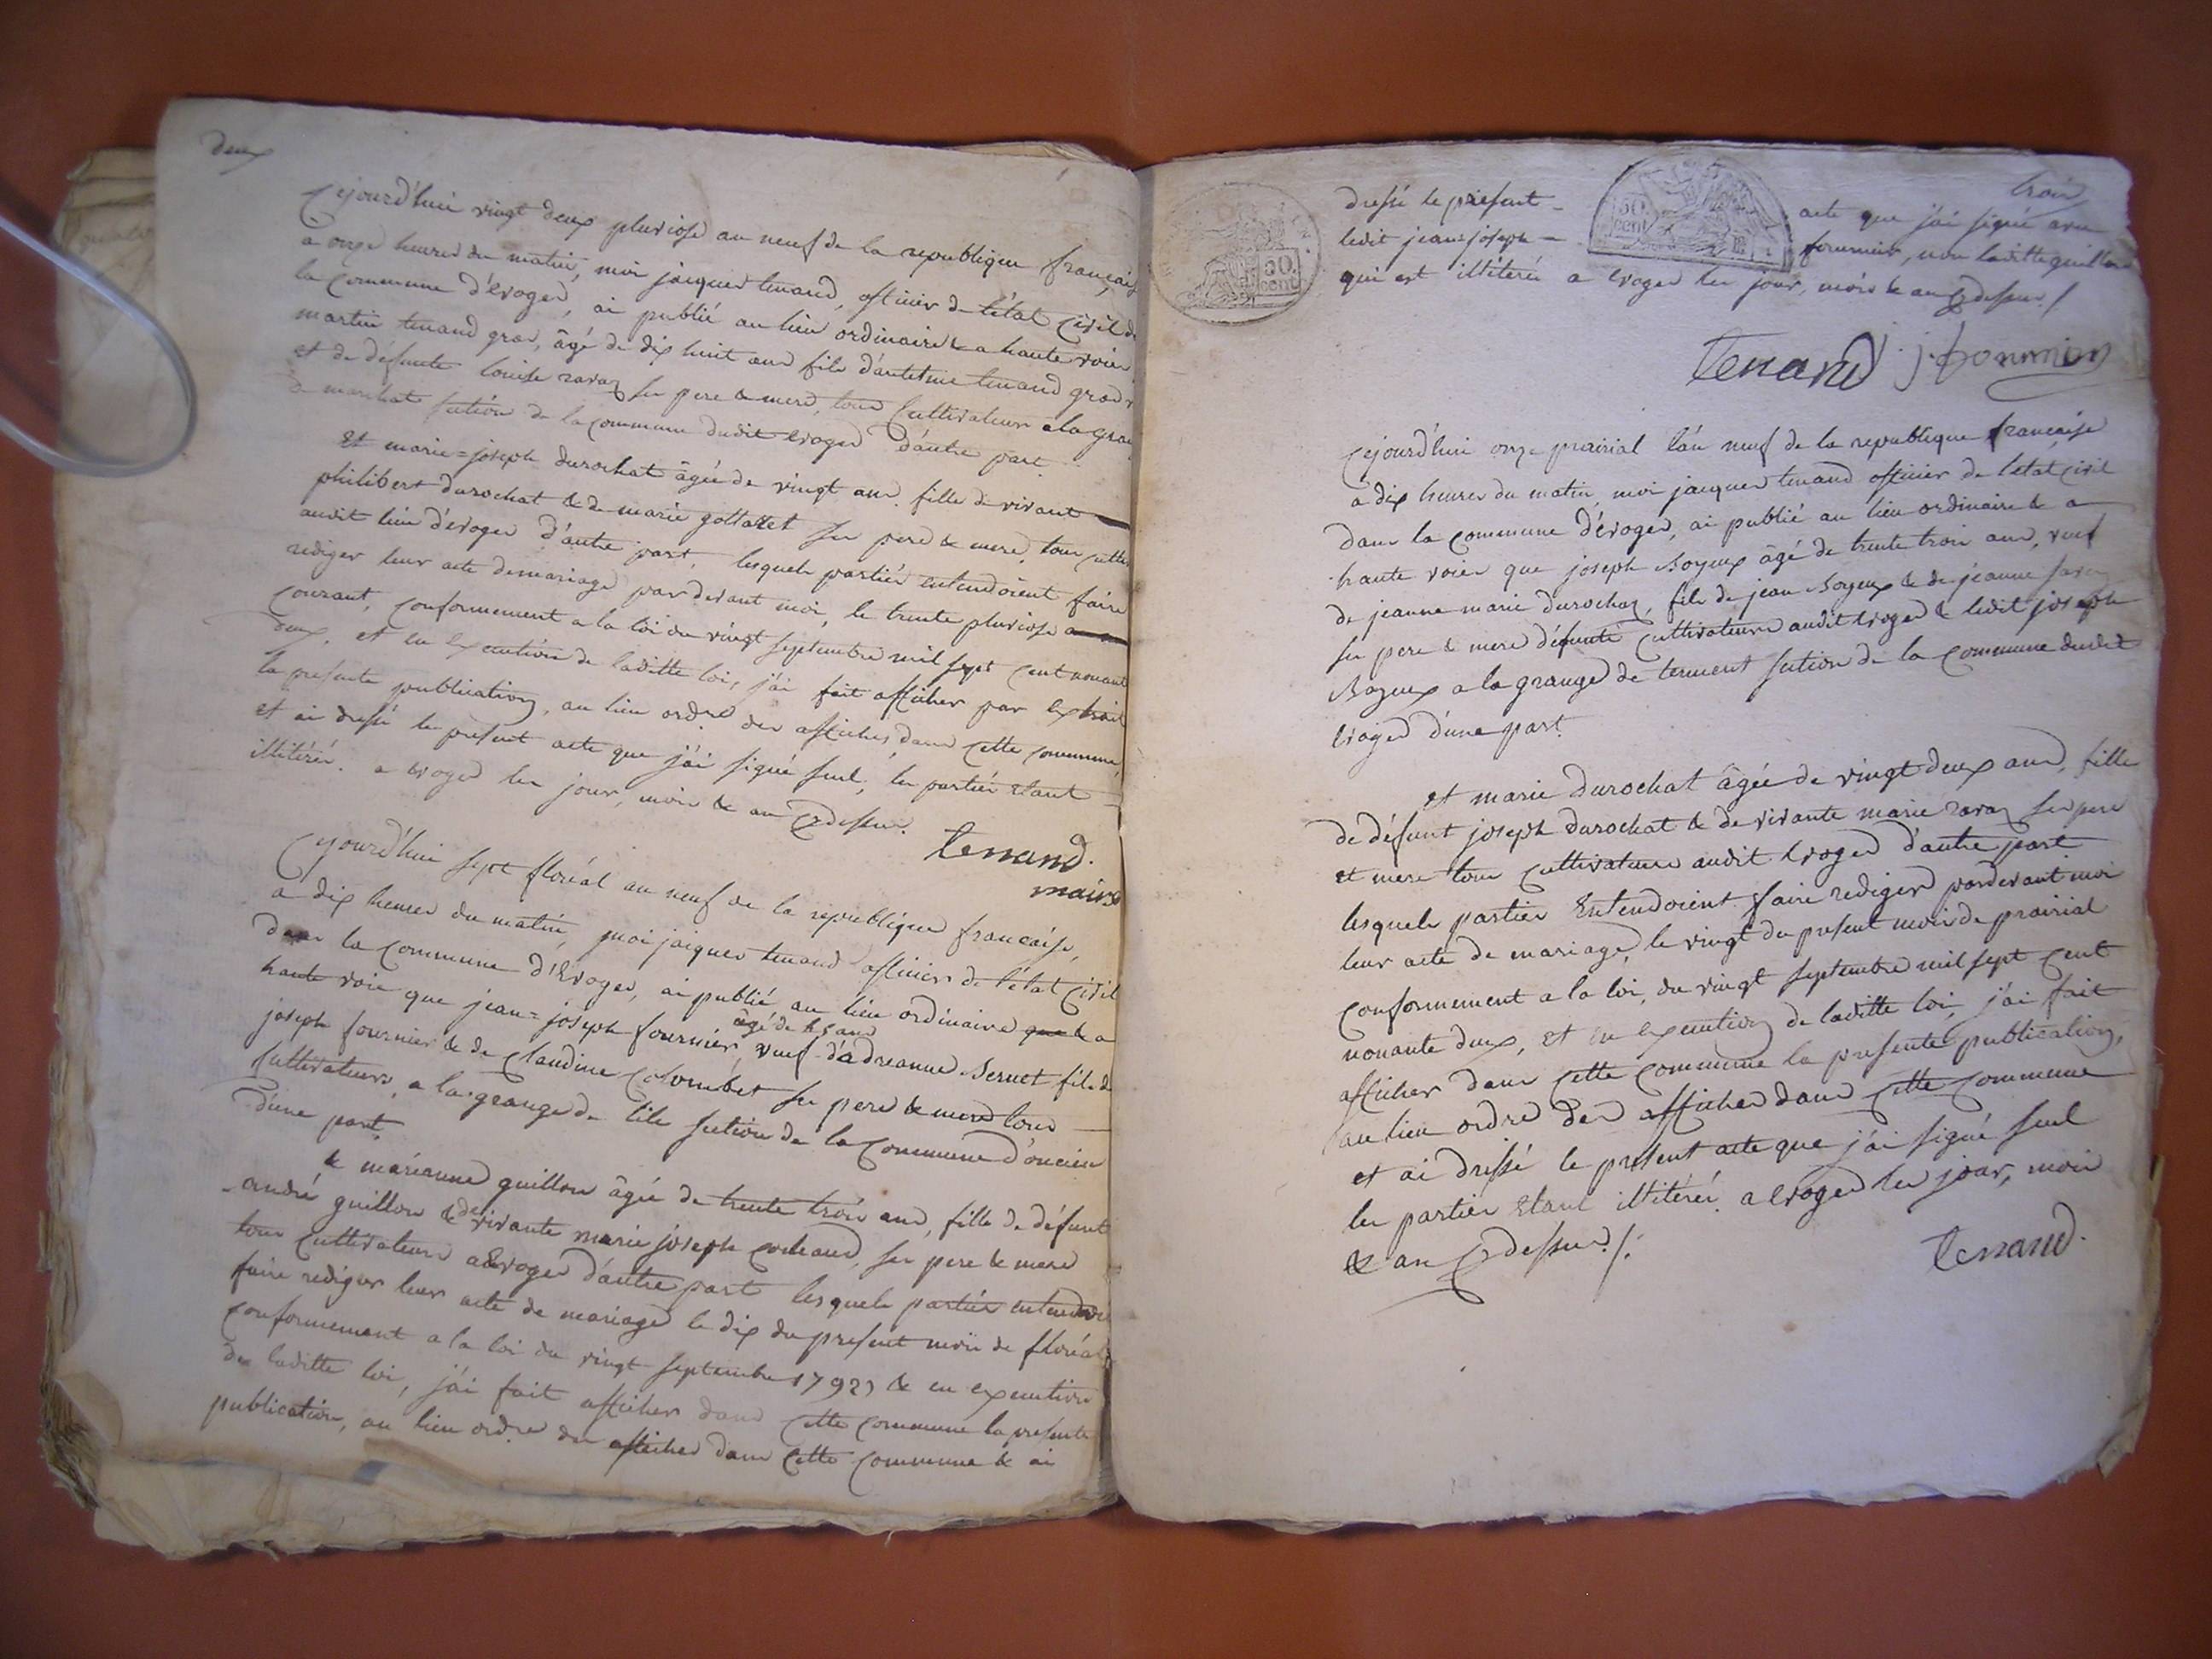 deux
Cejourd'hui vingt deux pluviose an neuf de la republique français
a onze heures du matin, moi jacques tenand, officier de l'état civil de
la commune d'évoges, ai publié au lieu ordinaire & a haute voix
martin tenand gros, âgé de dix huit ans fils d'antelme tenand gros
et de défunte louise ravaz ses pere & mere, tous cultivateurs a la gran
de marchat section de la commune dudit evoges d'autre part
et marie=joseph durochat âgée de vingt ans fille de vivant
philibert durochat & de marie gottallet ses pere & mere, tous culti
audit lieu d'évoges d'autre part, lesquels partiés entendoient faire
rediger leur acte de mariage pardevant moi, le trente pluviose
courant, conformement a la loi du vingt septembre mil sept cent nonant
deux, et en execution de laditte loi, j'ai fait afficher par extrait
la presente publication, au lieu ordre des affiches dans cette commune,
et ai dressé le present acte que j'ai signé seul, les partiés étant
illitérés. a evoges les jour, mois & an cydessus.
tenand.
maire
Cejourd'hui sept floréal an neuf de la republique francaise,
a dix heures du matin, moi jaiques tenand officier de l'état civil
dans la commune d'Evoges, ai publié au lieu ordinaire que & a
haute voie que jean=joseph fournier, veuf d'adreanne Sernet fils de
âgé de 45 ans
joseph fournier & de Claudine Colombet ses pere & mere tous
cultivateurs, a la grange de lile section de la commune d'oncieu
d'une part.
& marianne guillon âgée de trente trois ans, fille de défunt
andré guillon & de vivante marie joseph ses pere & mere
tous cultivateurs a Evoges d'autre part lesquels partiés entendoi
faire rediger leur acte de mariage le dix du present mois de floréal
conformement a la loi du vingt septembre 1792, & en execution
de laditte loi, j'ai fait afficher dans cette commune la presente
publication, au lieu ordre des affiches dans cette commune & ai
trois
dressé le present acte que j'ai signé avec
ledit jean=joseph fournier, non laditte guillon
qui est illitérée a evoges les jour, mois & an cydessus /
50. cent
50. cent
tenand j. fournier
Cejourd'hui onze prairial l'an neuf de la republique francaise
a dix heures du matin, moi jacques tenand officier de l'état civil
dans la commune d'évoges, ai publié au lieu ordinaire & a
haute voies que joseph Boyeux âgé de trente trois ans, veuf
de jeanne marie durochaz, fils de jean Boyeux & de jeanne
ses pere & mere défunte cultivateurs audit evoges & ledit joseph
Boyeux a la grange de tenment section de la commune dudit
evoges d'une part.
et marie durochat âgée de vingt deux ans, fille
de défunt joseph durochat & de vivante marie ravaz ses pere
et mere tous cultivateurs audit evoges d'autre part
lesquels parties Entendoient faire rediger pardevant moi
leur acte de mariage, le vingt du present mois de prairial
conformement a la loi, du vingt septembre mil sept cent
nonante deux, et en execution de laditte loi, j'ai fait
afficher dans cette commune la presente publication,
au lieu ordre des affiches dans cette commune
et ai dressé le present acte que j'ai signé seul
les parties étant illitérés. a evoges les jour, mois
& an cydessus /.
tenand.